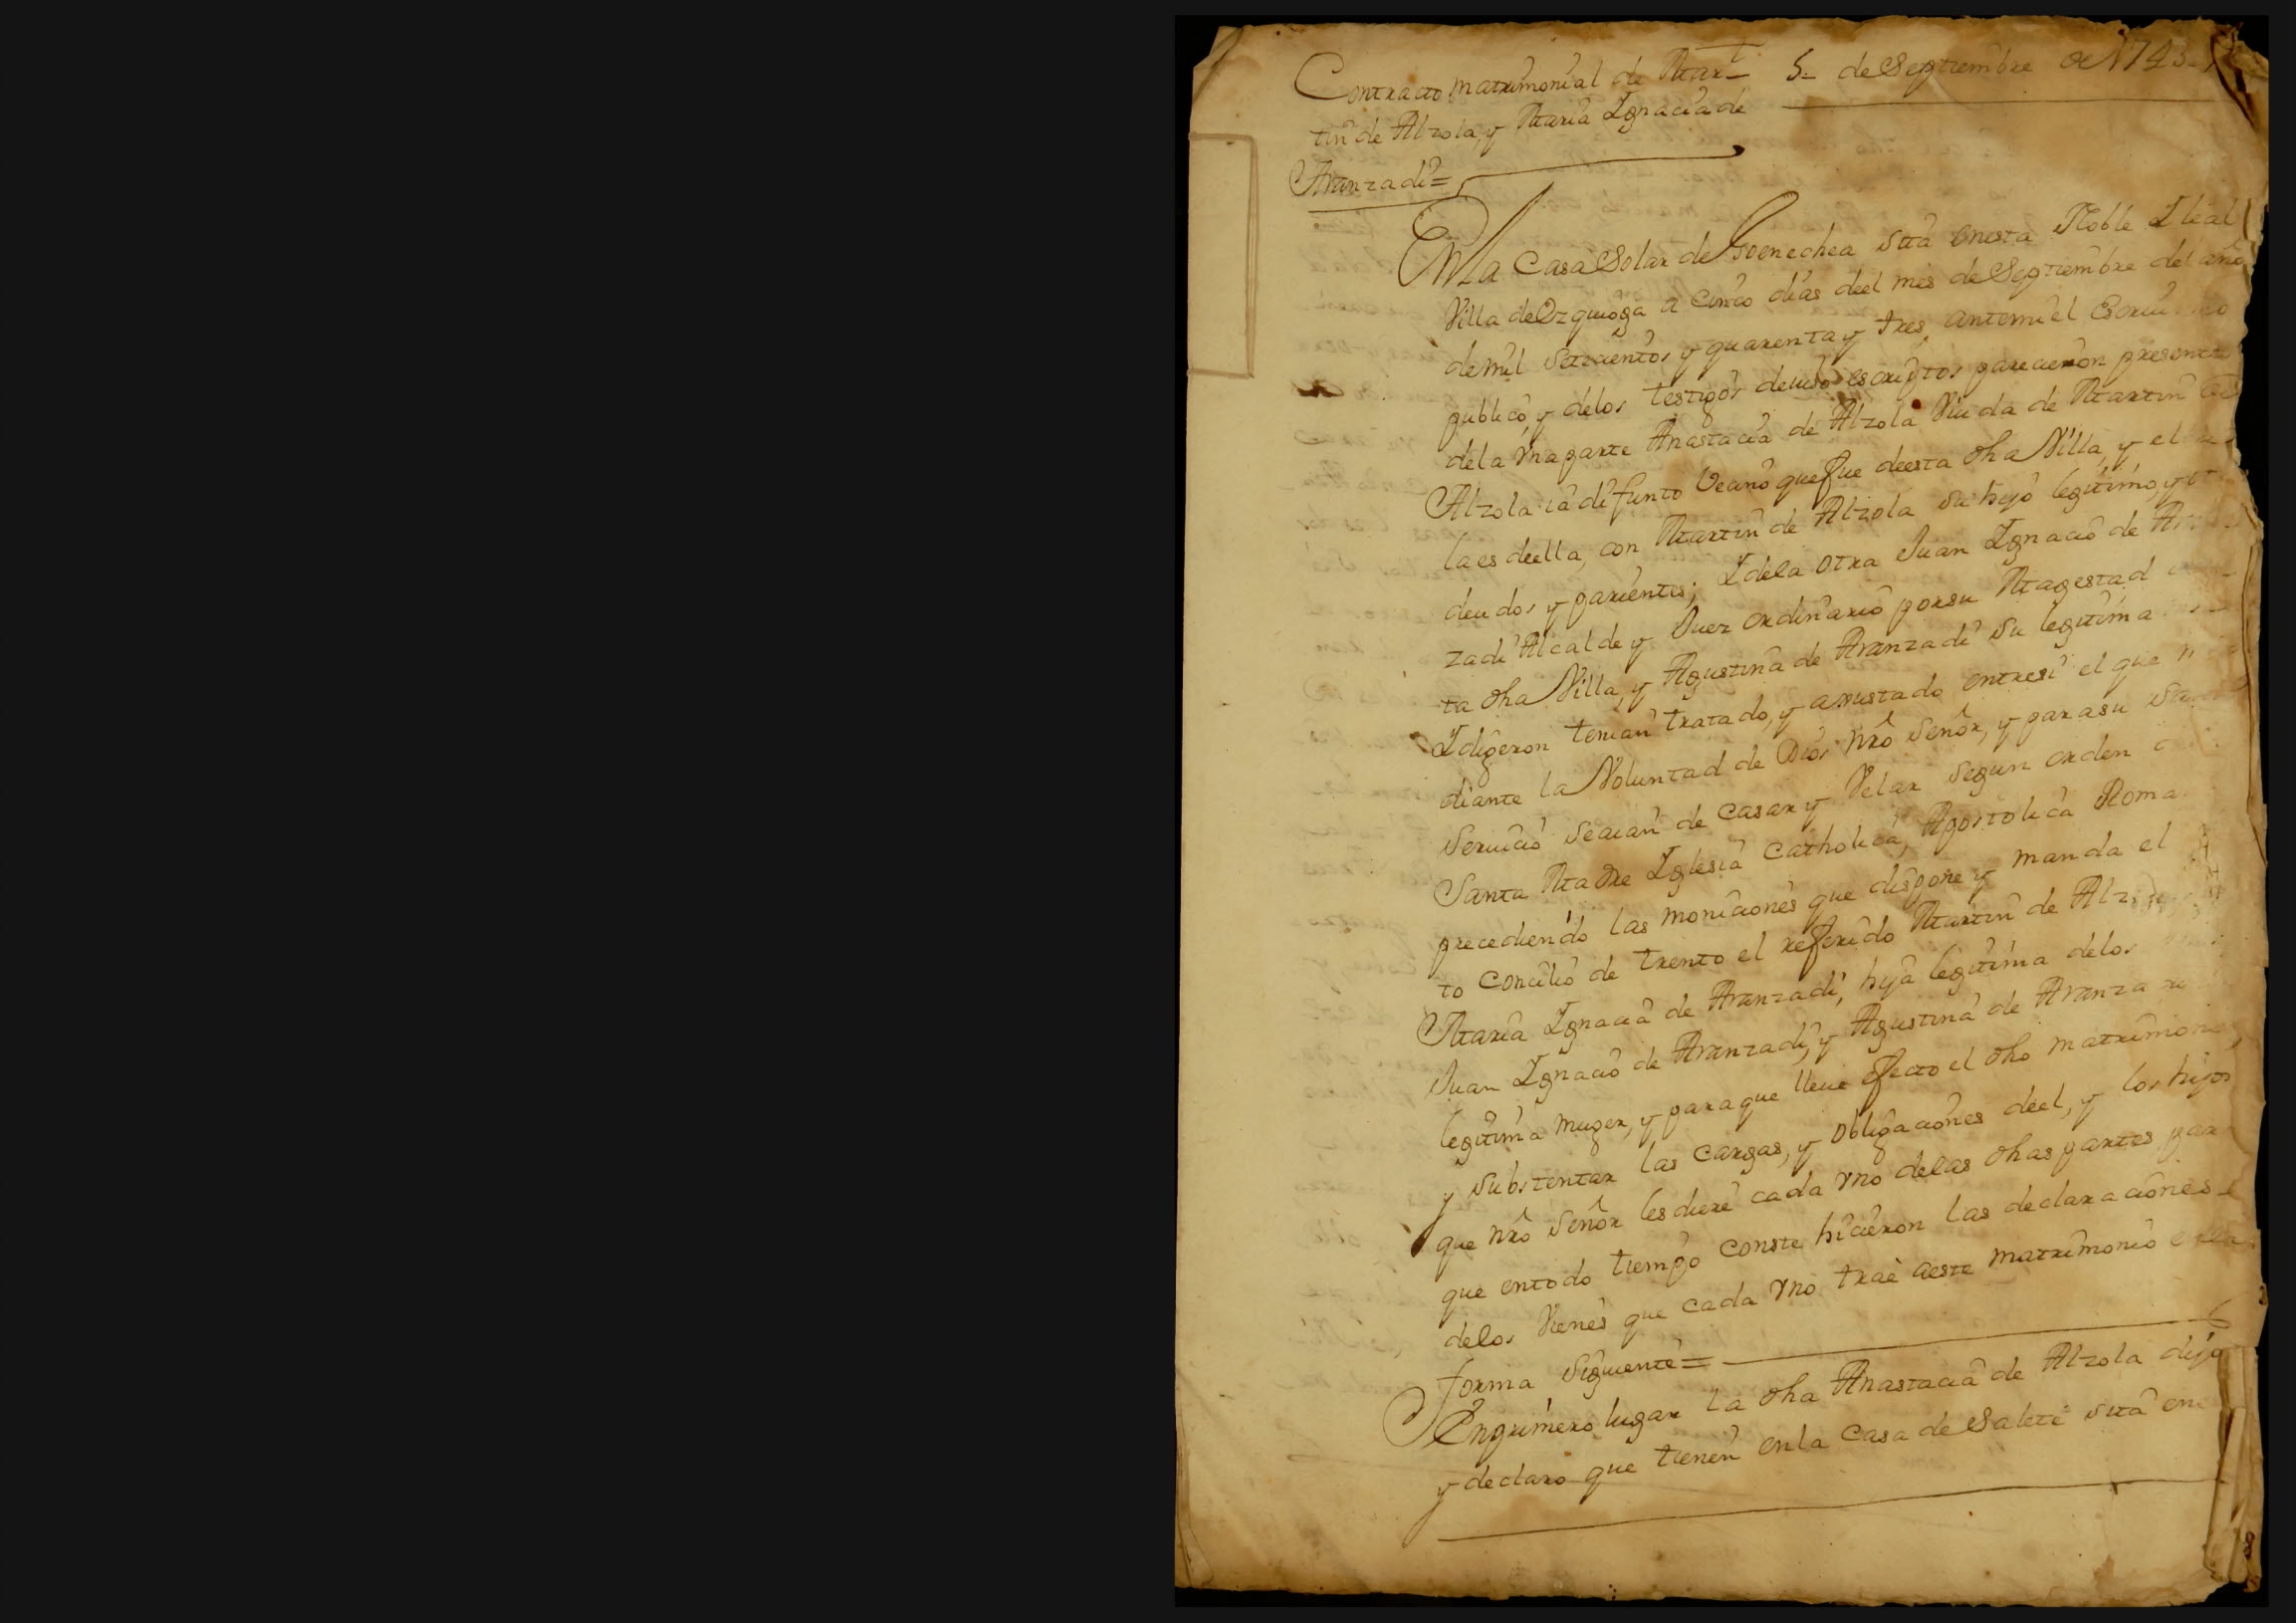 Contracto matrimonial de Mar-
tin de Alzola, y Maria Ygnacia de
Aranzadi =
5 - de Septiembre de 1743 -
En La Casa Solar de Goenechea sita en esta Noble Y leal
Villa de Ozquioga a cinco dias deel mes de Septiembre del año
de mil setecientos y quarenta y tres, ante mi el
publico, y de los testigos deuiso escriptos parecieron presentes
de la Vna parte Anastacia de Alzola Viuda de Martin de
Alzola ia difunto Vecino que fue de esta dha Villa, y el
la es de ella, con Martin de Alzola su hijo legitimo, y
deudos y parientes; Y de la otra Juan Ygnacio de
zadi Alcalde y Juez ordinario por su Magestad
ta dha Villa, y Agustina de Aranzadi su legitima
Y digeron tenian tratado, y ajustado entre si el que
diante la Voluntad de Dios nro Señor, y para su
seruicio se aian de casar y Velar segun orden
Santa Madre Yglesia Catholica, Apostolica Roma
precediendo las moniciones que dispone y manda el
to Concilio de trento el referido Martin de
Maria Ygnacia de Aranzadi, hija legitima de los
Juan Ygnacio de Aranzadi, y Agustina de Aranza
legitima muger, y para que lleue efecto el dho matrimonio,
y substentar las cargas, y obligaciones de el, y los hijos
que nro Señor les diere cada vno de las dhas partes par
que en todo tiempo conste hicieron las declaraciones
de los Vienes que cada vno trae a este matrimonio
forma siguiente =
En primero lugar la dha Anastacia de Alzola dijo
y declaro que tienen en la Casa de Salete sita en